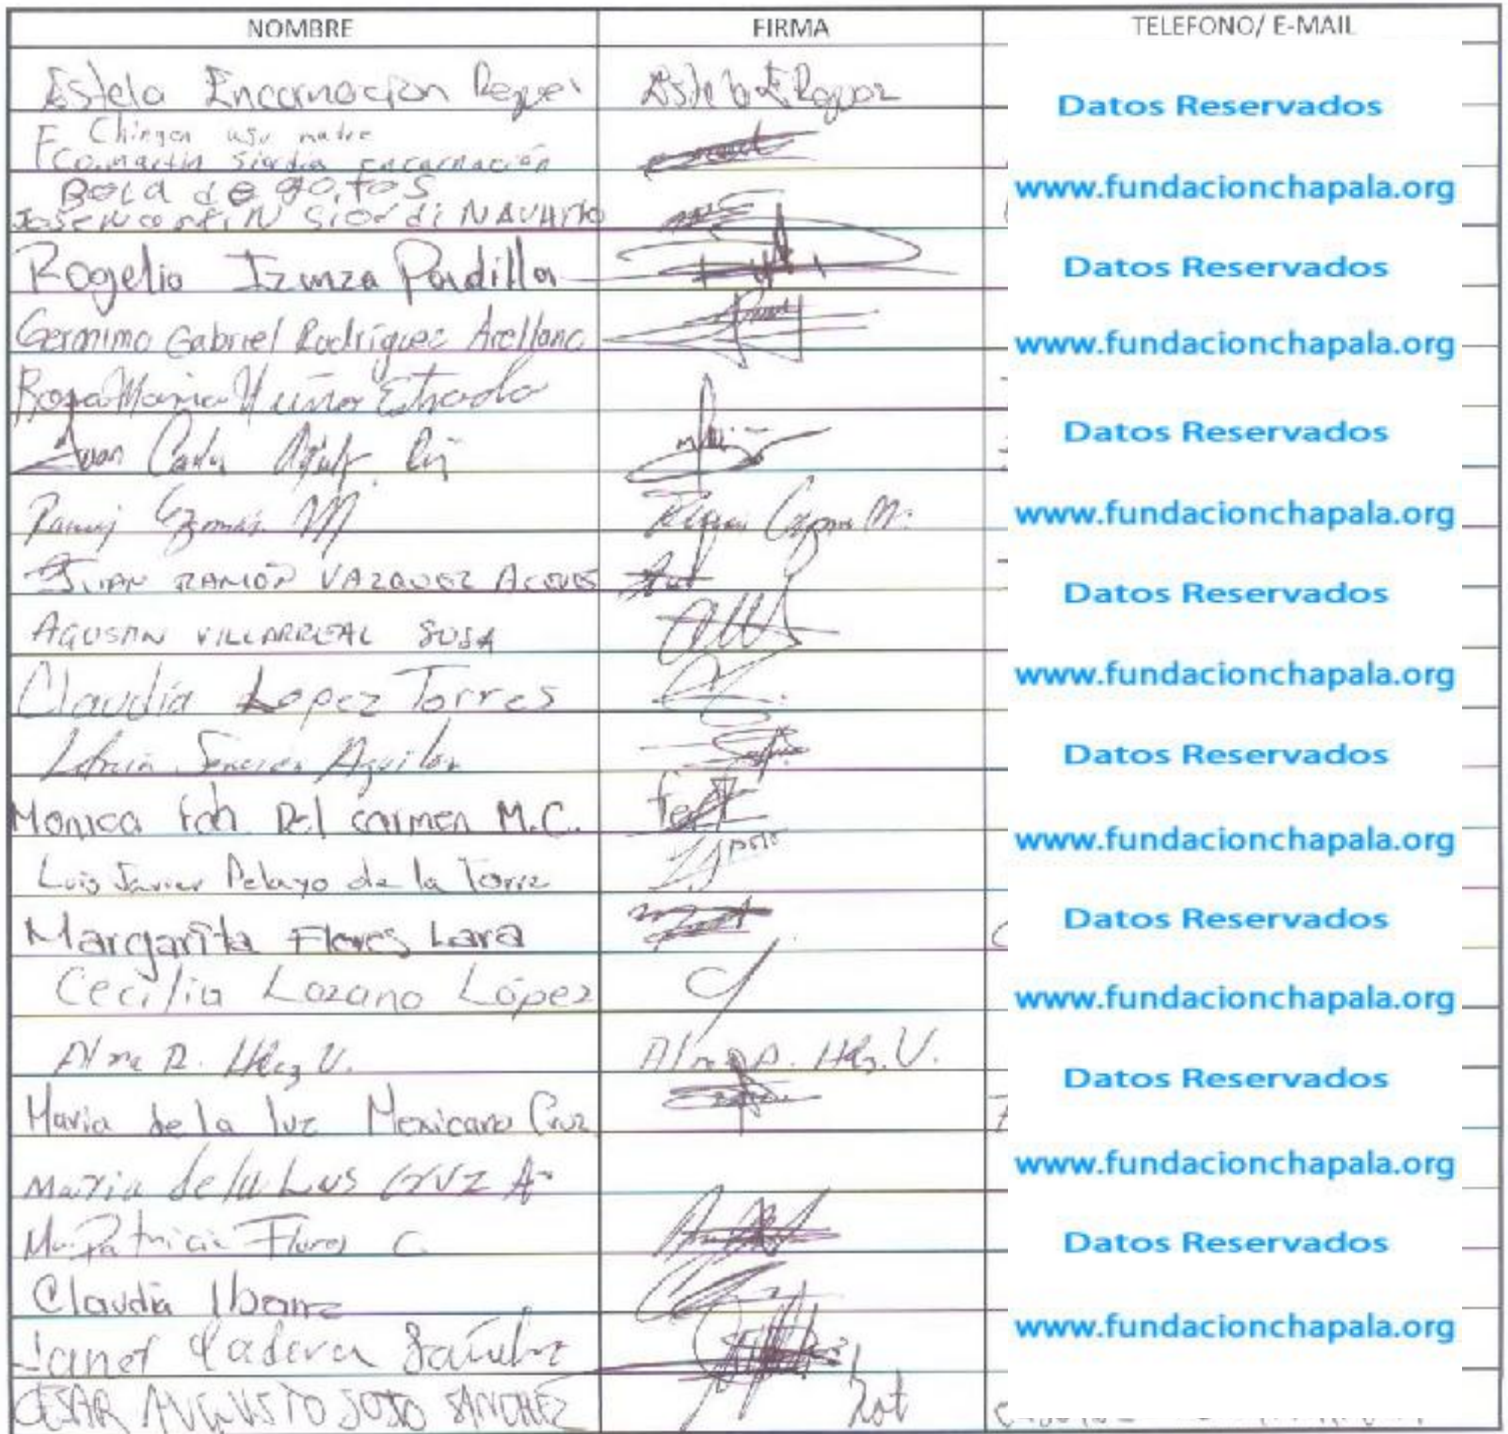 NOMBRE FIRMA TELEFONO/ E-MAIL
Estela Encarnocion Estela E.
Datos Reservados
Chingen asu madre
Fco. martin Siordia encarnación
www.fundacionchapala.org
Bola de go.tos
Siordi NAVARRO
Rogelio Izunza Padilla
Datos Reservados
Geronimo Gabriel Rodríguez Arellano
www.fundacionchapala.org
Rosa Maria Nuño Estrada
Datos Reservados
Juan Carlos
Guzmán M
www.fundacionchapala.org
JUAN RAMÓN VAZQUEZ ACEVES
Datos Reservados
AGUSTIN VILLARREAL SOSA
www.fundacionchapala.org
Claudia Lopez Torres
Aguilar
Datos Reservados
Monica Del carmen M.C.
www.fundacionchapala.org
Luis Javier Pelayo de la Torre
Margarita Flores Lara
Datos Reservados
Cecilia Lozano López
www.fundacionchapala.org
Alma R. Hdez V. Alma R. Hdz. V.
Datos Reservados
Maria de la luz Mexicano Cruz
Maria de la Lus CruZ A
www.fundacionchapala.org
Ma. Patricia Flores C.
Datos Reservados
Claudia Ibarra
www.fundacionchapala.org
Janet Cadena Sánchez
CESAR AUGUSTO SOTO SANCHEZ